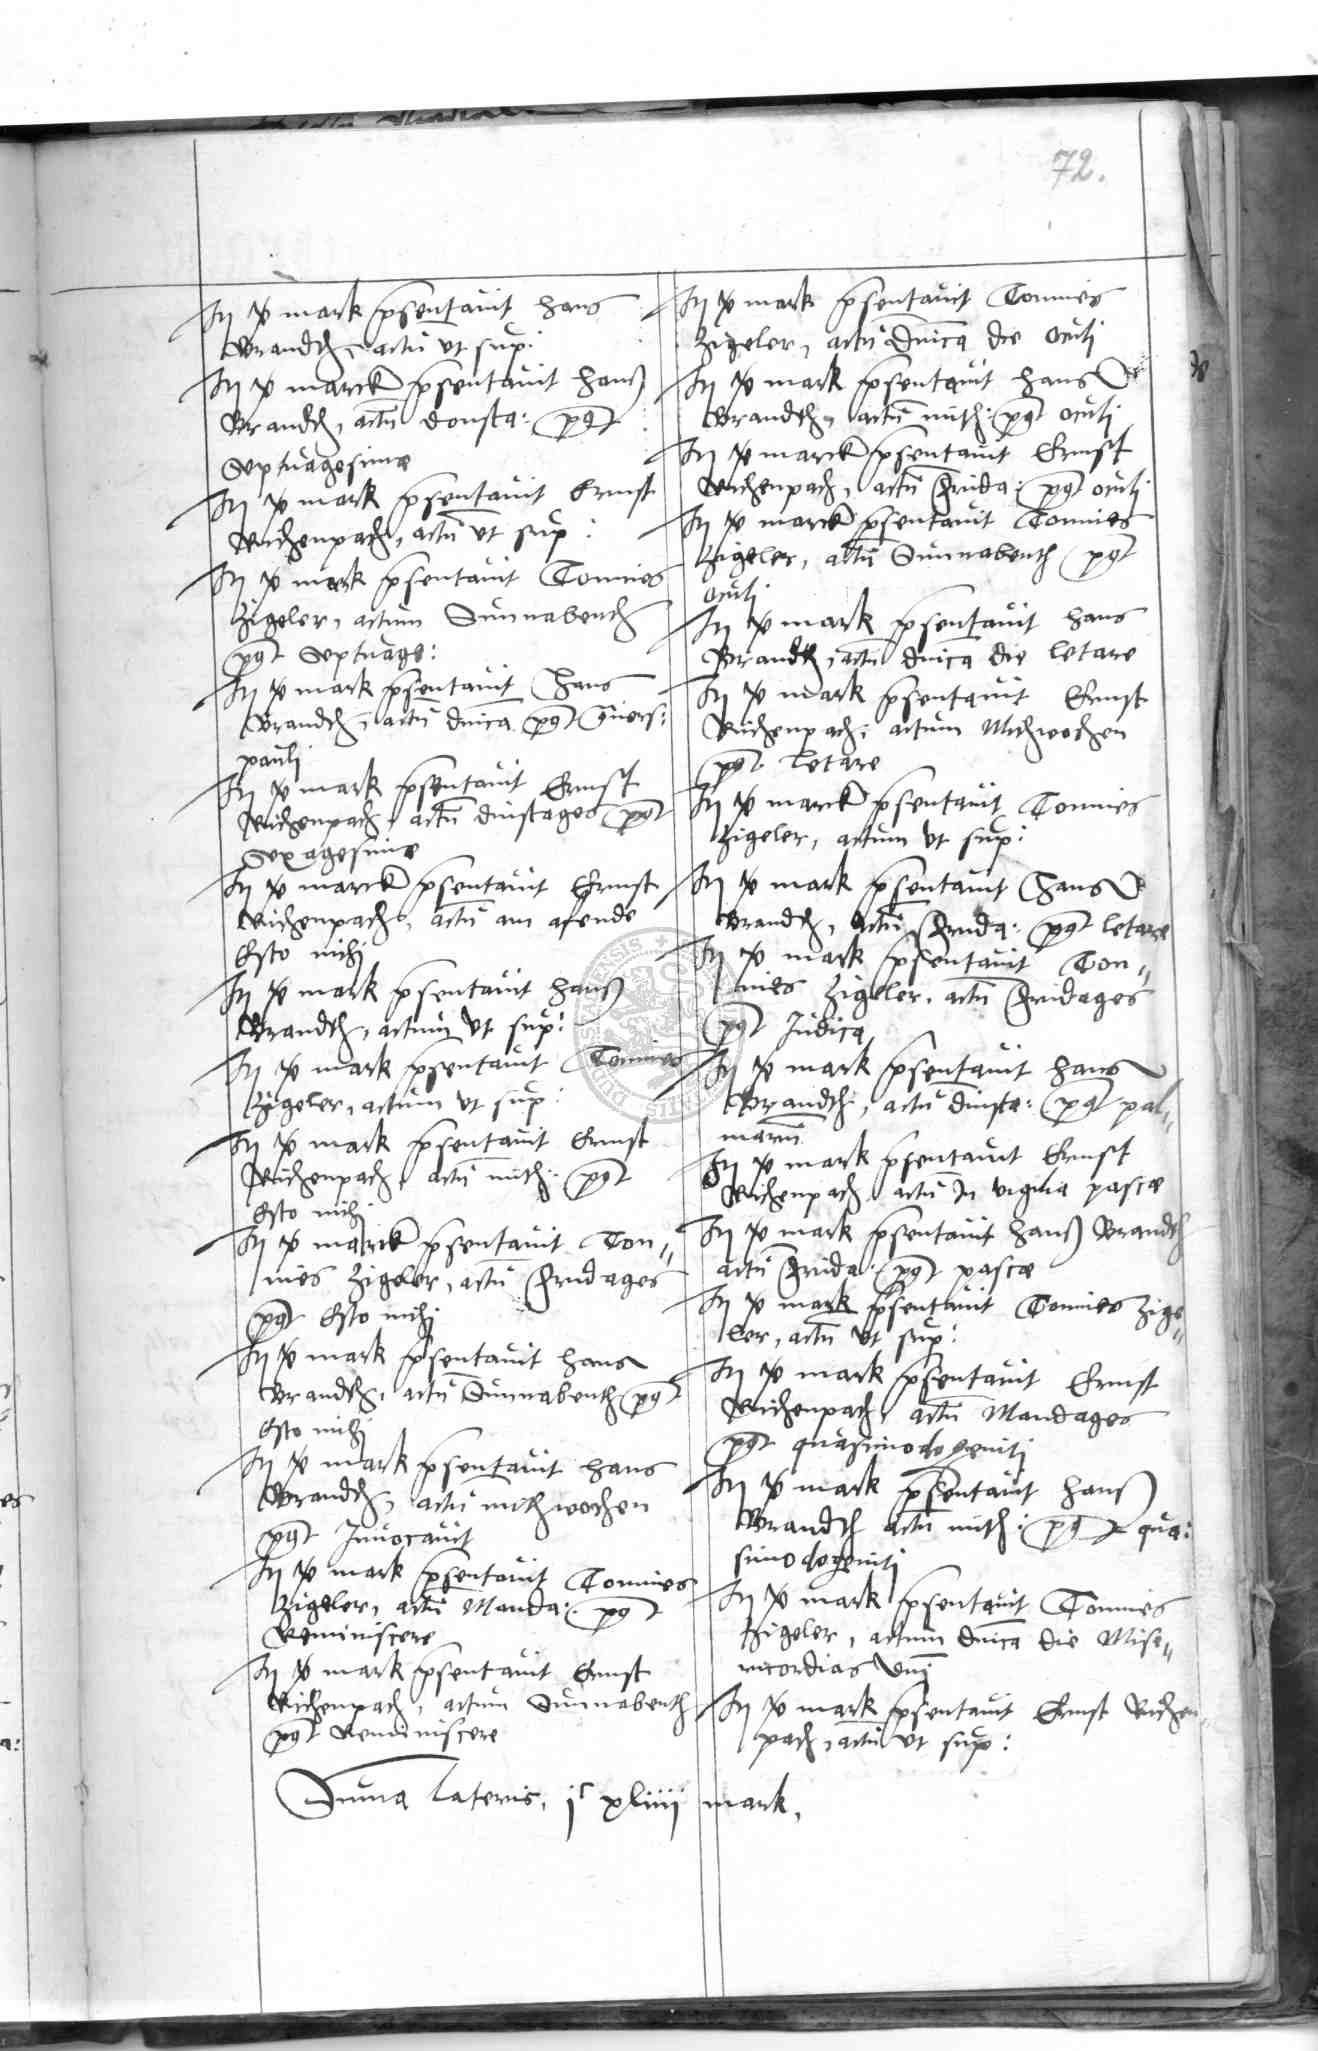 72.
Iŋ ꝟ mark p̄sentauit hans
Brandth, actū vt sup:
Iŋ ꝟ marck p̄sentauit hanß
Brandth, actū donsta: pꝰt
Septuagesime
Iŋ ꝟ mark p̄sentauit Ernst
Richenpach, actū vt sup:
Iŋ ꝟ mark p̄sentauit Tonnies
Zigeler, actum Sunnabendth
pꝰt Septuage:
Iŋ ꝟ mark p̄sentauit Hans
Brandth, actū dnīca pꝰt 9uers:
pauli
Iŋ ꝟ mark p̄sentauit Ernst
Richenpach, actū dinstages pꝰt
Sexagesime
Iŋ ꝟ marck p̄sentauit Ernst
Richenpach, actū am afende
Esto mihi
Iŋ ꝟ mark p̄sentauit hanß
Brandth, actum vt sup:
Iŋ ꝟ mark p̄sentauit Tonnies
Zigeler, actum vt sup:
Iŋ ꝟ mark p̄sentauit Ernst
Richenpach, actū mith: pꝰt
Esto mihi
Iŋ ꝟ marck p̄sentauit Ton„
nies Zigeler, actū Fridages
pꝰt Esto mihi
Iŋ ꝟ mark p̄sentauit hans
Brandth, actū Sunnabenth pꝰt
Esto mihi
Iŋ ꝟ mark p̄sentauit hans
Brandth, actū mithwochen
pꝰt Inuocauit
Iŋ ꝟ mark p̄sentauit Tonnies
Zigeler, actū Manda: pꝰt
Reminiscere
Iŋ ꝟ mark p̄sentauit Ernst
Richenpach, actum Sunnabenth
pꝰt Reminiscere
Iŋ ꝟ mark p̄sentauit Tonnies
Zigeler, actū dnīca die Oculi
Iŋ ꝟ mark p̄sentauit hans
Brandth, actū mith: pꝰt oculi
Iŋ ꝟ marck p̄sentauit Ernst
Richenpach, actū Frida: pꝰt oculi
Iŋ ꝟ marck p̄sentauit Tonnies
Zigeler, actū Sunnabenth pꝰt
oculi
Iŋ ꝟ mark p̄sentauit hans
Brandth, actū dnīca die letare
Iŋ ꝟ mark p̄sentauit Ernst
Richenpach, actum Mithwochen
pꝰt letare
Iŋ ꝟ marck p̄sentauit Tonnies
Zigeler, actum vt sup:
Iŋ ꝟ mark p̄sentauit Hans
Brandth, actū Frida: pꝰt letare
Iŋ ꝟ mark p̄sentauit Ton„
nies Zigeler, actū Fridages
pꝰt Judica
Iŋ ꝟ mark p̄sentauit hans
Brandth, actū dinsta: pꝰt pal„
marū
Iŋ ꝟ mark p̄sentauit Ernst
Richenpach actū In vigilia pasce
Iŋ ꝟ mark p̄sentauit hanß Brandth
actū Frida: pꝰt pasce
Iŋ ꝟ mark p̄sentauit Tonnies Zige„
ler, actū vt sup:
Iŋ ꝟ mark p̄sentauit Ernst
Richenpach, actū Mandages
pꝰt quasimodogeniti
Iŋ ꝟ mark p̄sentauit hanß
Brandth actū mith: pꝰt qua:
simodogeniti
Iŋ ꝟ mark p̄sentauit Tonnies
Zigeler, actum dnīca die Mise„
ricordias dnī
Iŋ ꝟ mark p̄sentauit Ernst Richen„
pach, actū vt sup:
Suma lateris, jᶜ xliiij mark,